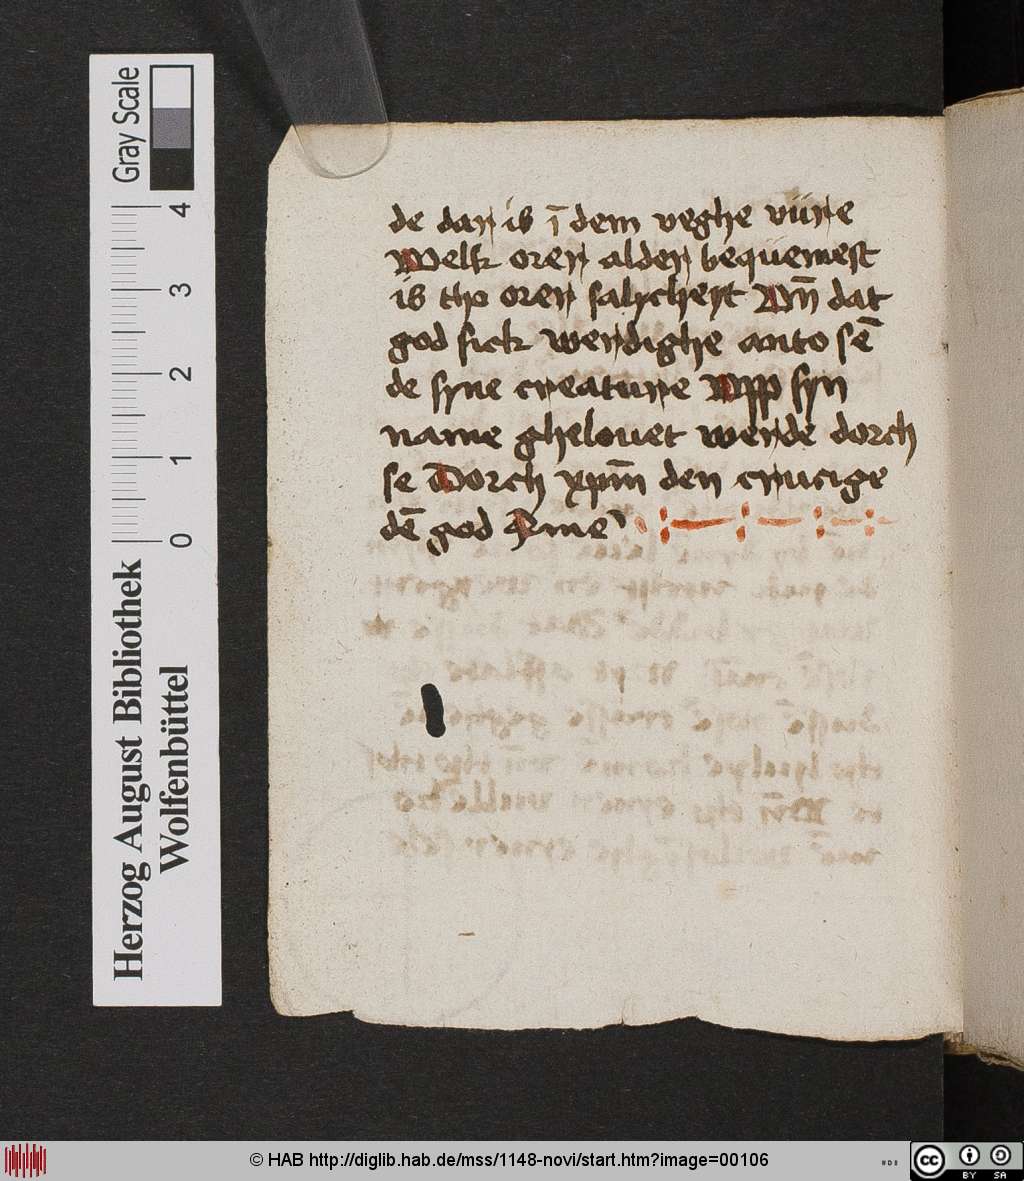 de dar is ī dem veghe vūre
Welk oren alden bequemest
is tho oren salicheyt Vn̄ dat
god sick werdighe an to sē
de syne creature Vpp syn
name ghelouet werde dorch
se Dorch xpm̄ den crucige
dē god Ame
Gray Scale
4
3
2
1
0
Herzog August Bibliothek
Wolfenbüttel
© HAB http://diglib.hab.de/mss/1148-novi/start.htm?image=00106
cc BY SA